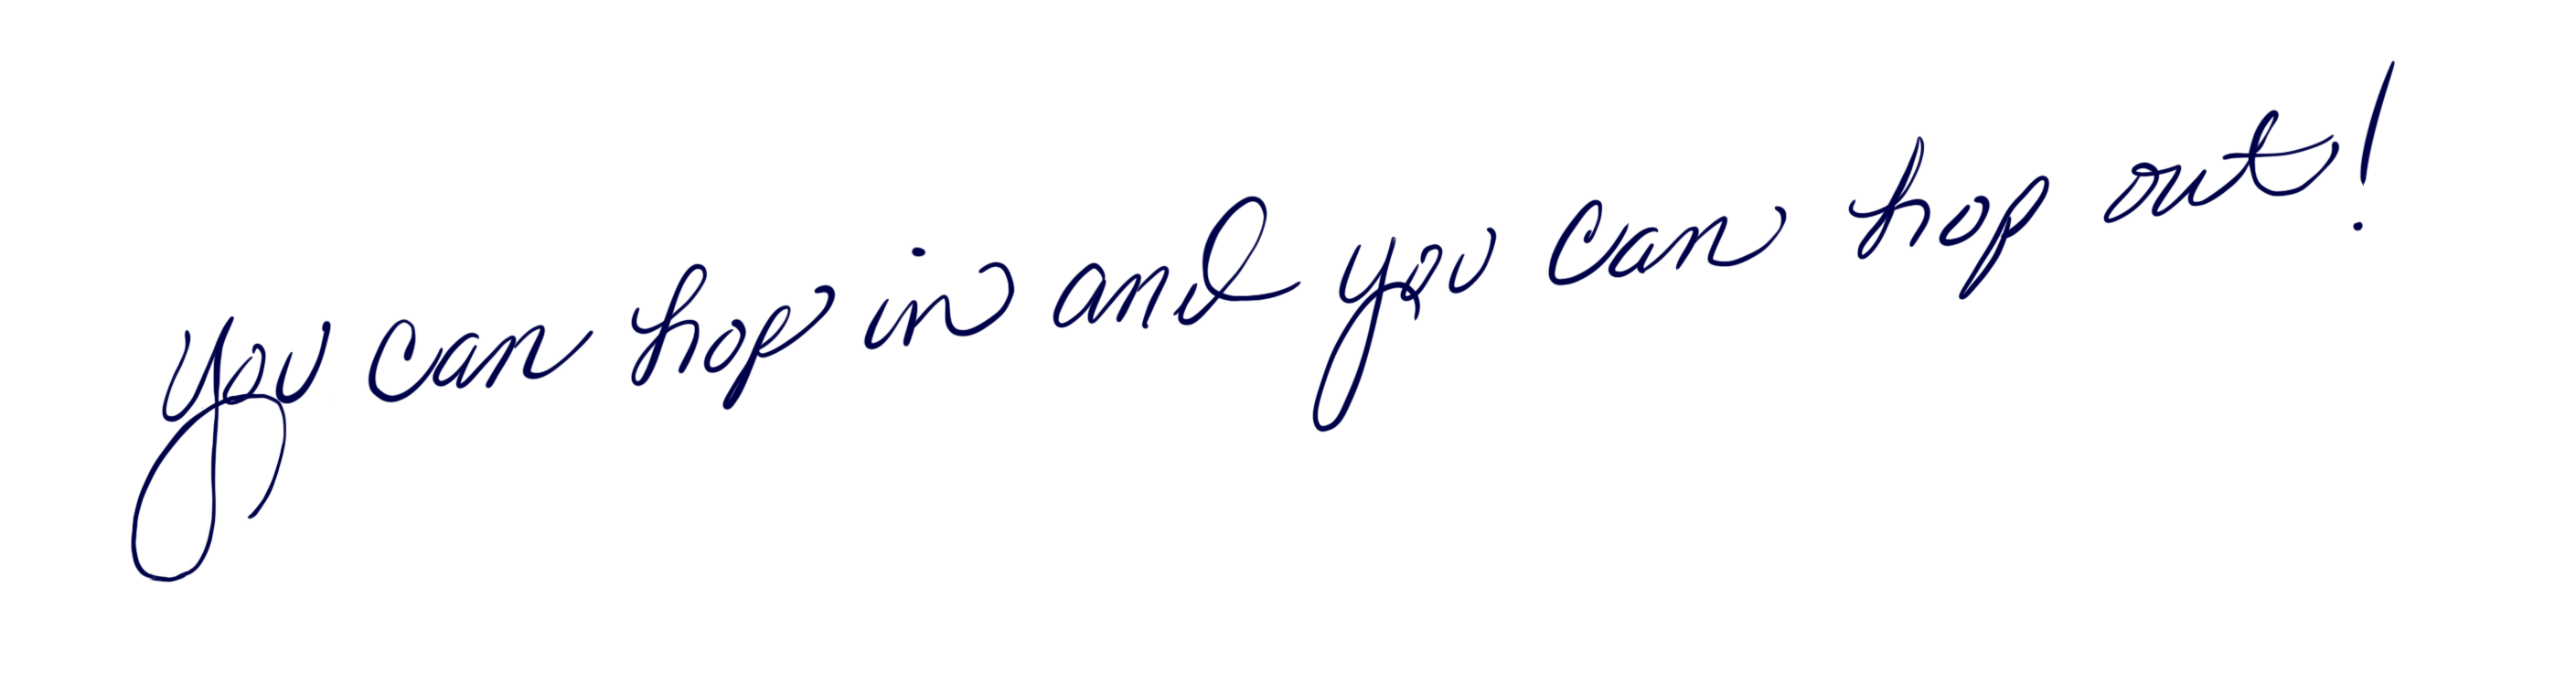 you can hop in and you can hop out!